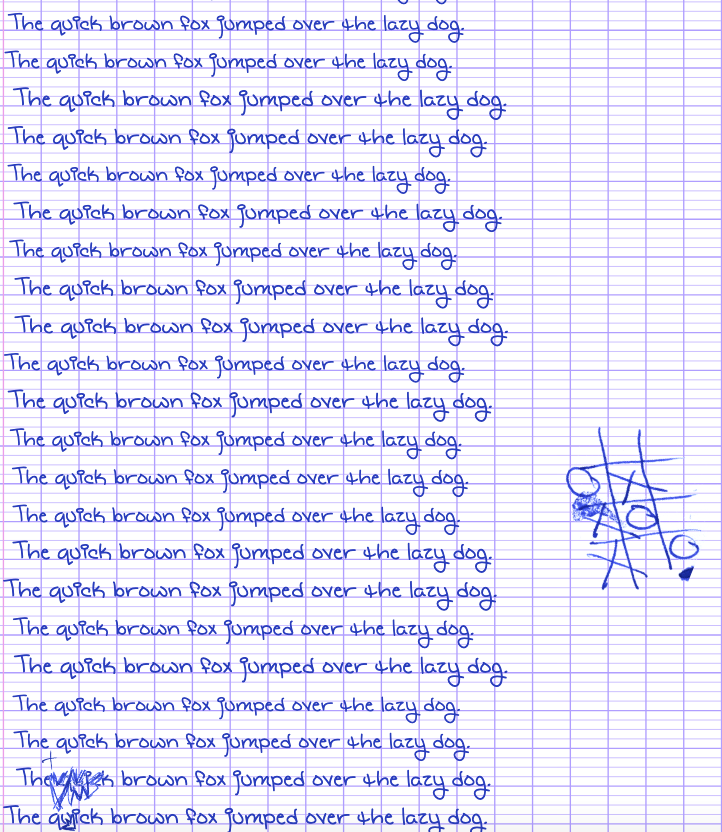 The quick brown fox jumped over the lazy dog.
The quick brown fox jumped over the lazy dog.
The quick brown fox jumped over the lazy dog.
The quick brown fox jumped over the lazy dog.
The quick brown fox jumped over the lazy dog.
The quick brown fox jumped over the lazy dog.
The quick brown fox jumped over the lazy dog.
The quick brown fox jumped over the lazy dog.
The quick brown fox jumped over the lazy dog.
The quick brown fox jumped over the lazy dog.
The quick brown fox jumped over the lazy dog.
The quick brown fox jumped over the lazy dog.
The quick brown fox jumped over the lazy dog.
The quick brown fox jumped over the lazy dog.
The quick brown fox jumped over the lazy dog.
The quick brown fox jumped over the lazy dog.
The quick brown fox jumped over the lazy dog.
The quick brown fox jumped over the lazy dog.
The quick brown fox jumped over the lazy dog.
The quick brown fox jumped over the lazy dog.
The brown fox jumped over the lazy dog.
The quick brown fox jumped over the lazy dog.